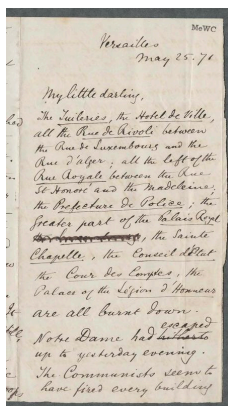 MeWC
Versailles
May 25. 71
My little darling,
The Tuileries, the Hotel de Ville,
all the Rue de Rivoli between
the Rue de Luxembourg and the
Rue d'alger; all the left of the
Rue Royale between the Rue
St Honoré and the Madeleine;
the Préfecture de Police; the
greater part of the Palais Royal
, the Sainte
Chapelle, the Conseil d'Etat
the Cour des Comptes, the
Palace of the Légion d'Honneur
are all burnt down.
Notre Dame had hitherto escaped
up to yesterday evening.
The Communists seem to
have fired every building